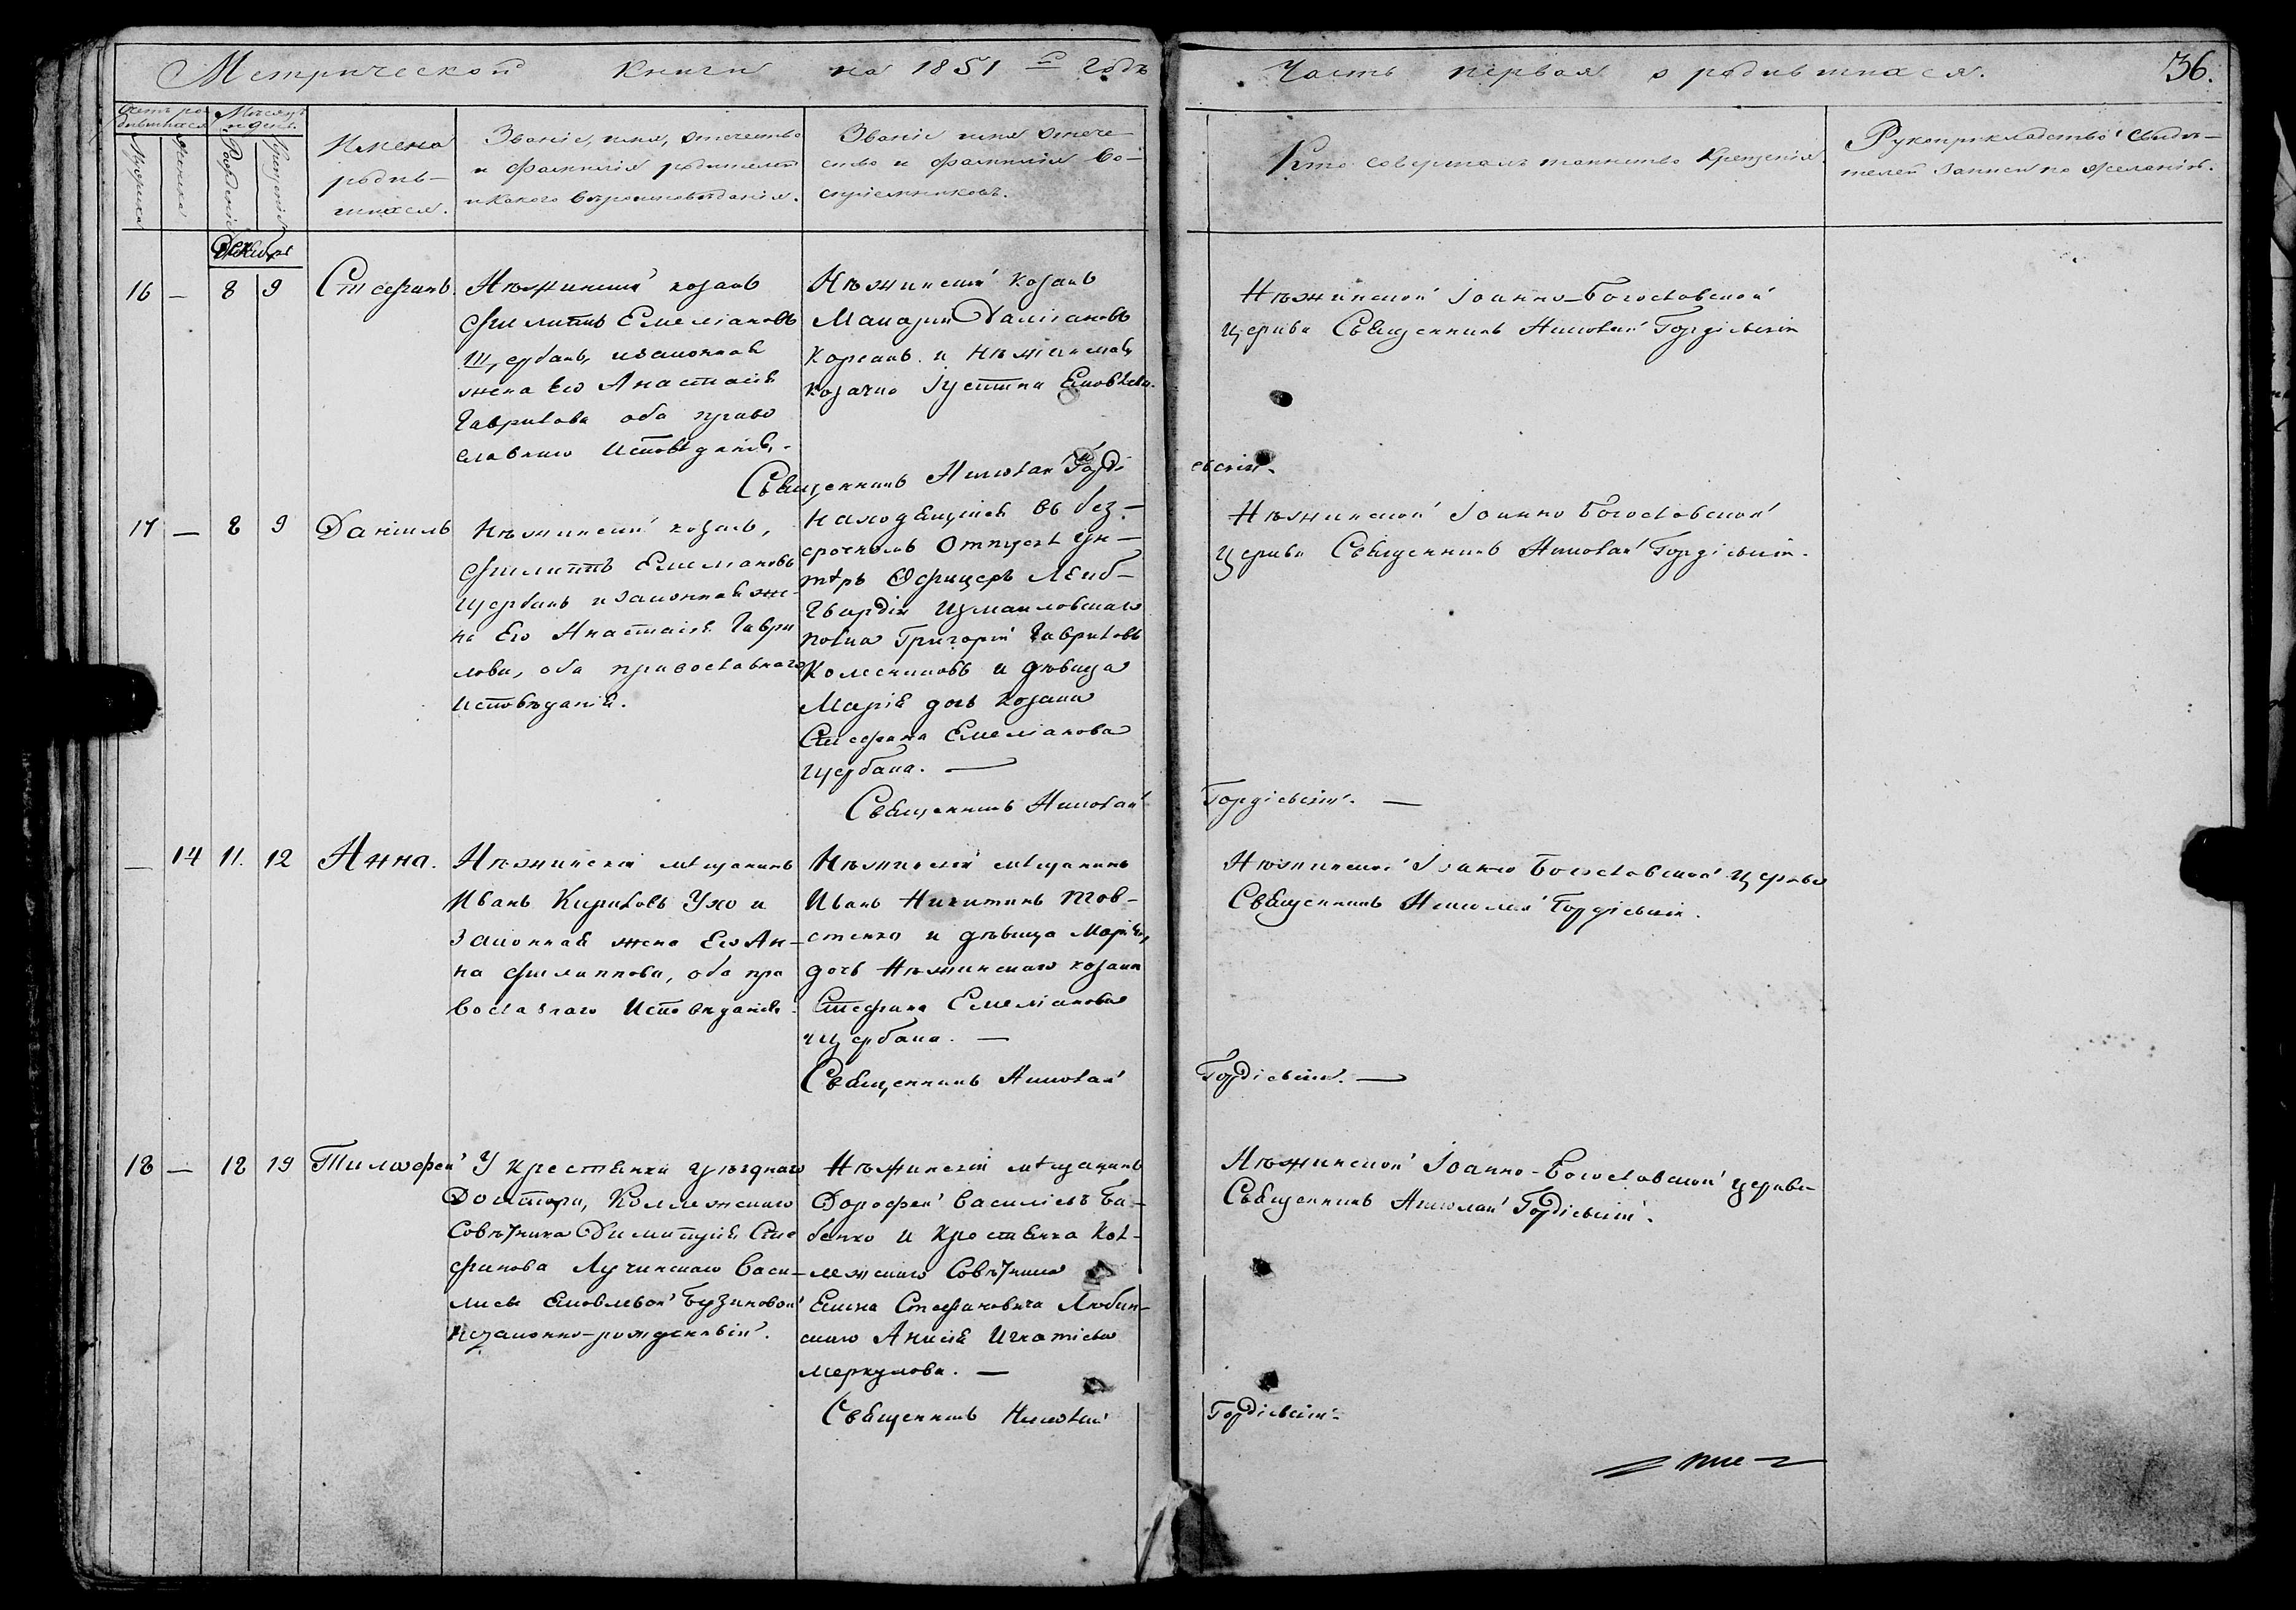 Метрической книги на 1851 й Годъ
Часть первая о родившихся.
36.
Счетъ ро-
дившихся
Мѣсяцъ
и день
Мужеска
Женска
Рожденія
Крещенія
Имена
родив-
шихся.
Званіе, имя, отечество
и фамилія родителей
и какого вѣроисповѣданія.
Званіе имя отече-
ство и фамилія во-
спріемниковъ.
Кто совершалъ таинство Крещенія.
Рукоприкладство свидѣ-
телей записи по желанію.
Декабрь
16 — 8 9 Стефанъ.
Нѣжинскій козакъ
Филиппъ Емеліановъ
Щербакъ, изаконная
жена Его Анастасія
Гаврилова оба право
славнаго Исповѣданія.-
Нѣжинскій козакъ
Макарій Даміановъ
и Нѣжинская
козачка Іустина
Священникъ Николай Горді
евскій.
Нѣжинской Іоанно-Богословской
церкви Священникъ Николай Гордіевскій
17 — 8 9 Даніилъ
Нѣжинскій козакъ,
Филиппъ Емеліановъ
Щербакъ и законная же-
на Его Анастасія Гаври
лова, оба православнаго
Исповѣданія.
Находящійся въ без-
срочномъ Отпускѣ Ун-
теръ Офицеръ Лейб-
Гвардіи Измаиловскаго
полка Григорій Гавриловъ
Колесниковъ и дѣвица
Марія дочь козака
Стефана Емеліанова
Щербака. —
Священникъ Николай
Гордіевскій. —
Нѣжинской Іоанно Богословской
Церкви Священникъ Николай Гордіевскій.
— 14 11. 12 Анна.
Нѣжинскій мѣщанинъ
Иванъ Кириловъ Ухо и
Законная жена Его Ан-
на Филиппова, оба пра
вославнаго Исповѣданія.
Нѣжинскій мѣщанинъ
Иванъ Никитинъ Тов-
стенко и дѣвица Марія,
дочь Нѣжинскаго козака
Стефана Емеліанова
Щербака. —
Священникъ Николай
Гордіевскій. —
Нѣжинской Іоанно Богословской Церкви
Священникъ Николай Гордіевскій.
18 — 18 19 Тимофей
У крестянки уѣзднаго
Доктора, Коллежскаго
Совѣтника Димитрія Сте
фанова Лучинскаго Васи-
лисы Яковлевой Бузиновой
незаконно-рожденный.
Нѣжинскій мѣщанинъ
Дорофей Василіевъ Ба-
бенко и Крестянка Кол-
лежскаго Совѣтника
Якима Стефановича Любин-
скаго Анисія Игнатіева
Меркулова. —
Священникъ Николай
Гордіевскій.
Нѣжинской Іоанно-Богословской Церкви
Священникъ Николай Гордіевскій.